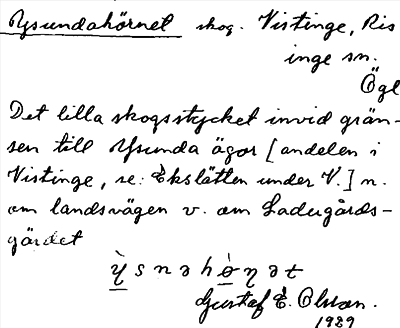 Ysundahörnet skog. Vistinge, Ris
inge sn.
Ögl
Det lilla skogsstycket invid grän-
sen till Ysunda ägor [andelen i
Vistinge, se: Ekslätten under V.] n.
om landsvägen v. om Ladugårds-
gärdet
ỳsnəhø̀ṇət
Gustaf E. Olsson.
1929